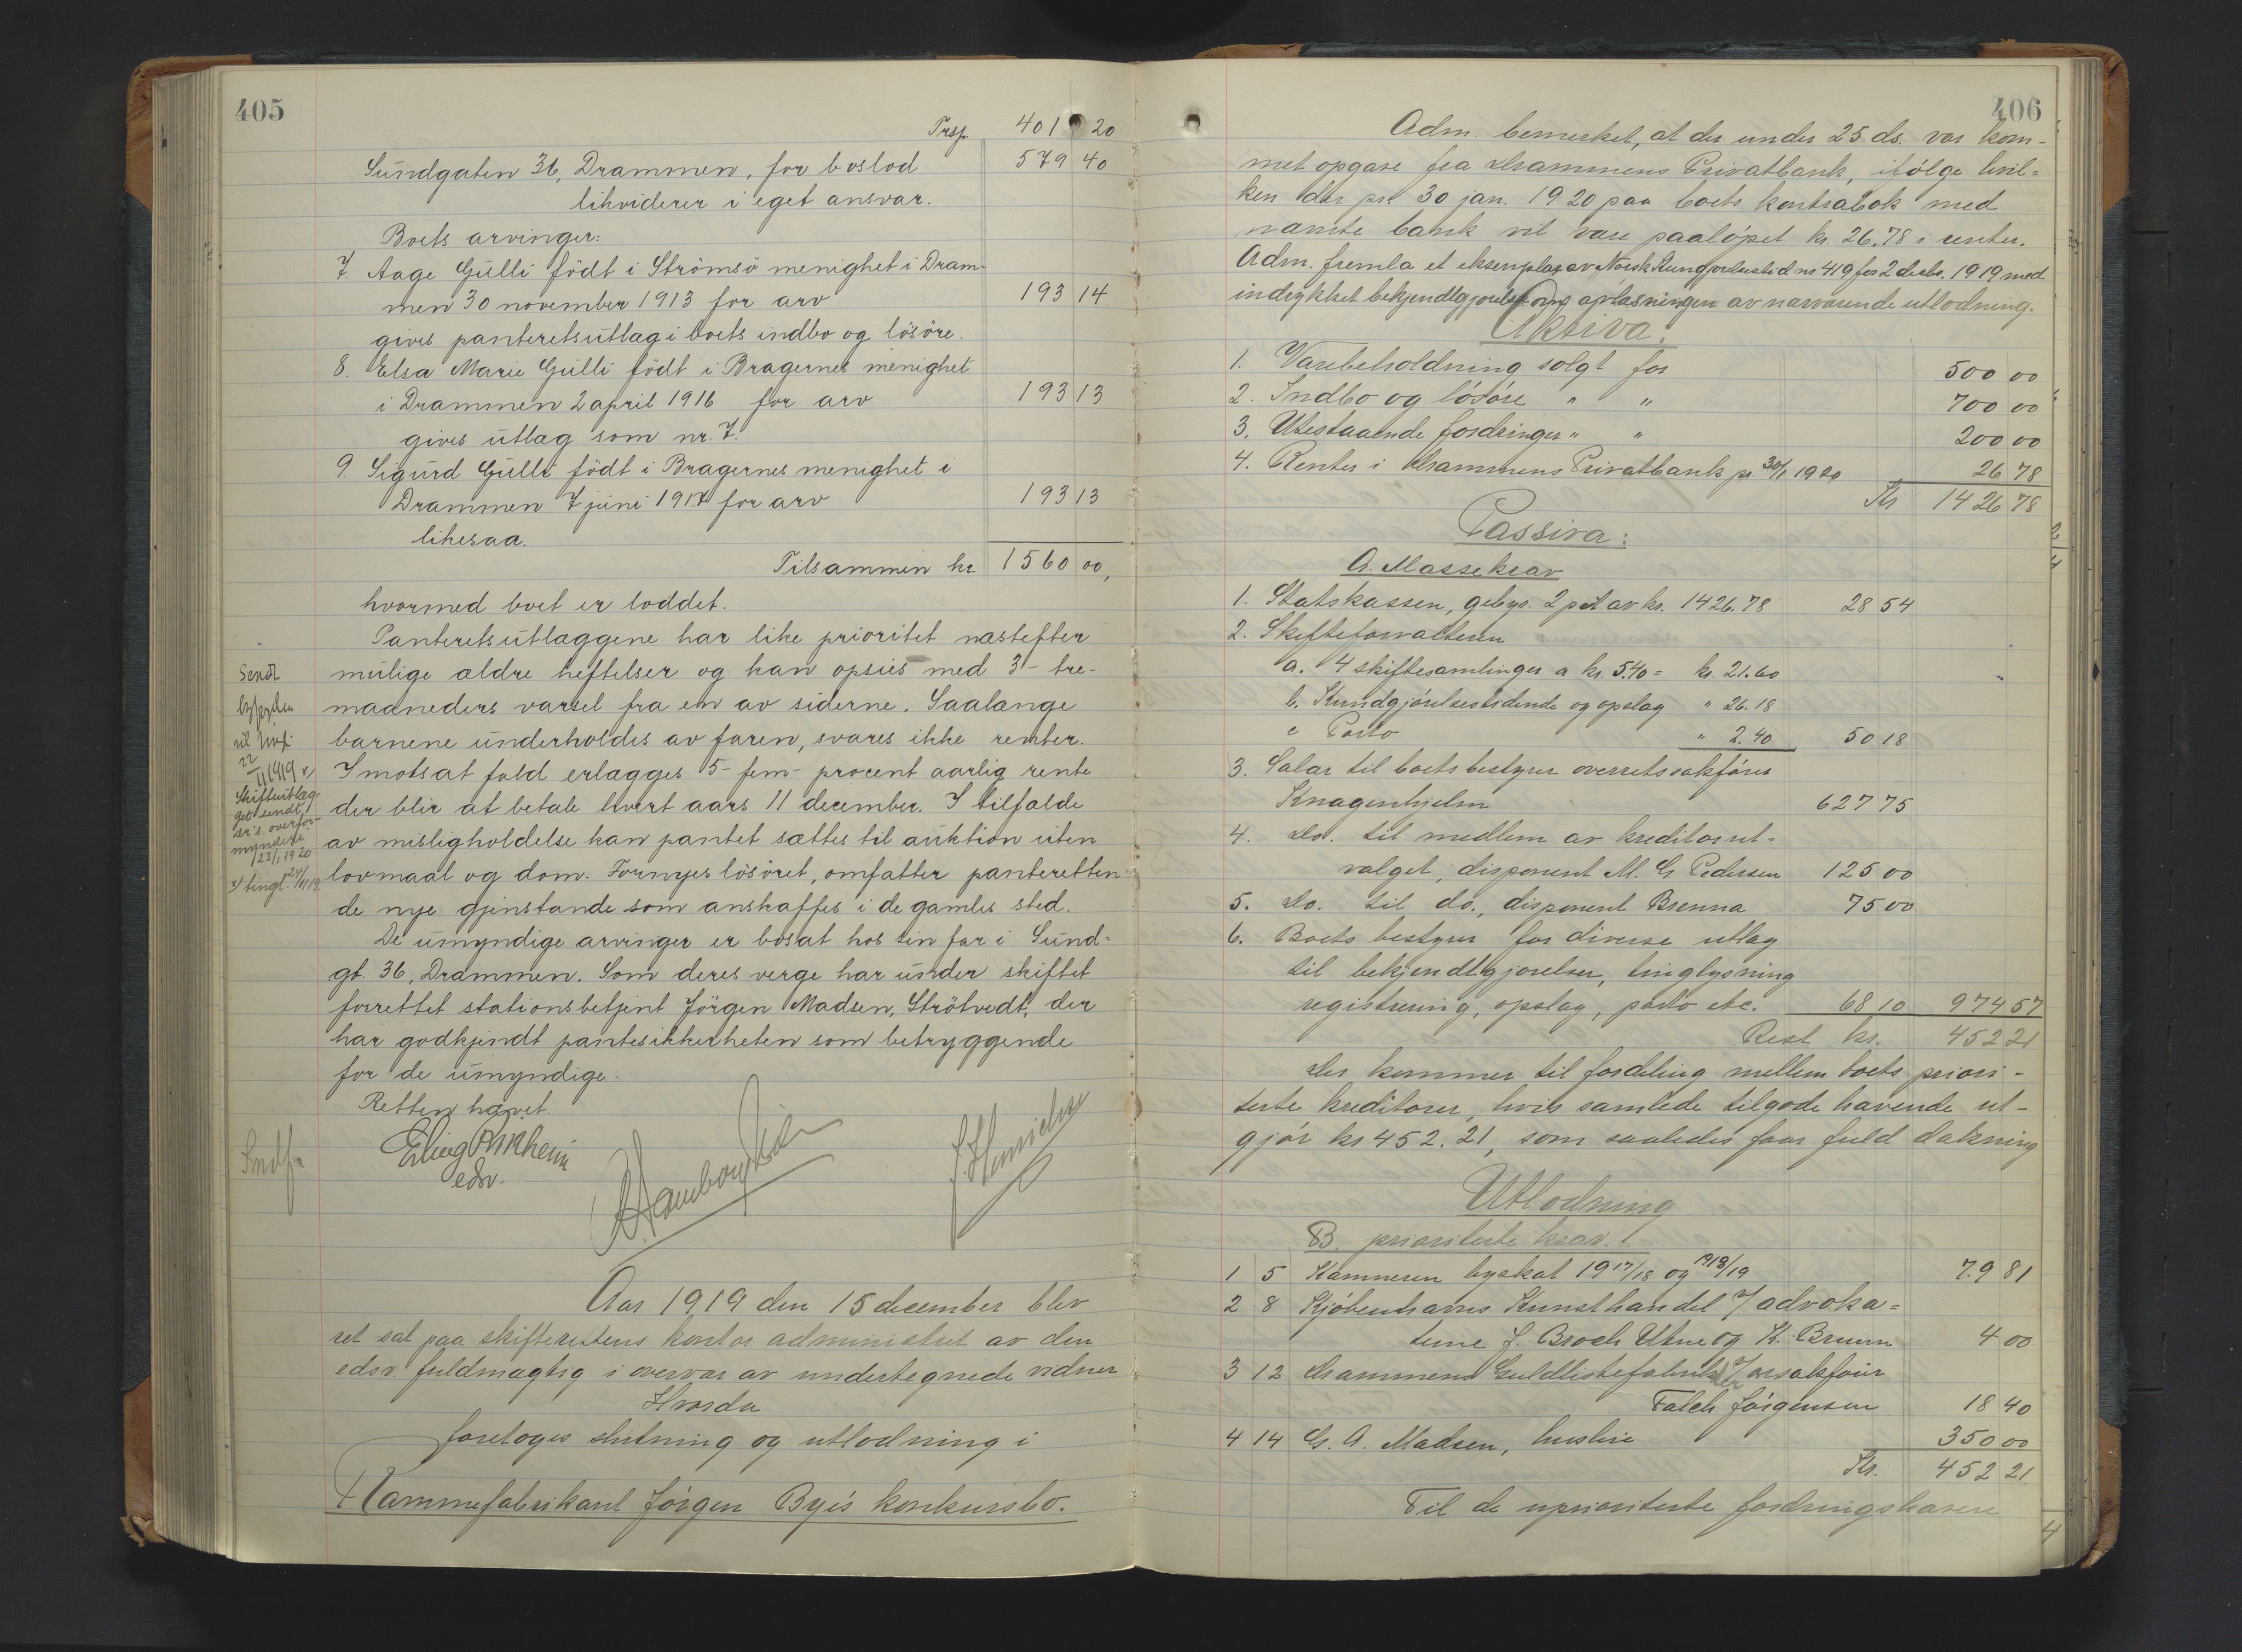 405
Trsp. 401 20
Sundgaten 36, Drammen, for boslod 579 40
likviderer i eget ansvar.
Boets arvinger:
7. Aage Gulli födt i Strömsö menighet i Dram-
men 30 november 1913 for arv 193 14
gives panteretsutlæg i boets indbo og lösöre.
8. Elsa Marie Gulli födt i Bragernes menighet
i Drammen 2 april 1916 for arv 193 13
gives utlæg som nr. 7.
9. Sigurd Gulli födt i Bragernes menighet i
Drammen 7 juni 1917 for arv 193 13
likesaa.
Tilsammen kr. 1560 00,
hvormed boet er loddet.
Panteretsutlæggene har like prioritet næstefter
mulige ældre heftelser og kan opsies med 3- tre-
maaneders varsel fra en av siderne. Saalange
barnene underholdes av faren, svares ikke renter.
I motsat fald erlægges 5- fem- procent aarlig rente
der blir at betale hvert aars 11 december. I tilfælde
av misligholdelse kan pantet sættes til auktion uten
lovmaal og dom. Fornyes lösöret, omfatter panteretten
de nye gjenstande som anskaffes i de gamles sted.
De umyndige arvinger er bosat hos sin far i Sund-
gt. 36, Drammen. Som deres verge har under skiftet
forrettet stationsbetjent Jörgen Madsen, Strötvedt, der
har godkjendt pantesikkerheten som betryggende
for de umyndige.
Retten hævet.
Sendt
byfogden
til
22/11 1919 x)
Skifteutlæg-
get sendt
overfor-
mynderi
23/1 1920
x) tingl. 24/11 19.
Erling
edsv.
Aar 1919 den 15 december blev
ret sat paa skifterettens kontor administrert av den
edsv. fuldmægtig i overvær av undertegnede vidner
Hvorda
foretoges slutning og utlodning i
Rammefabrikant Jörgen Bye's konkursbo.
406
Adm. bemerket, at der under 25 ds. var kom-
met opgave fra Drammens Privatbank, ifölge hvil-
ken der pr. 30 jan. 1920 paa boets kontrabok med
nævnte bank vil være paalöpet kr. 26.78 i renter.
Adm. fremla et eksemplar av Norsk Kundgjörelsestid nr 419 for 2 decbr. 1919 med
indrykket bekjendtgjörelse om avlæsningen av nærværende utlodning.
Aktiva.
1. Varebeholdning solgt for 500 00
2. Indbo og lösöre " " 700 00
3. Utestaaende fordringer " " 200 00
4. Renter i Drammens Privatbank pr. 30/1 1920 26 78
Kr 1426 78
Passiva:
A. Massekrav
1. Statskassen, gebyr. 2 pct av kr. 1426.78 28 54
2. Skifteforvalteren
a. 4 skiftesamlinger a kr. 5.40 = kr. 21.60
b. Kundgjörelsestidende og opslag " 26.18
c Porto " 2.40 50 18
3. Salær til boets bestyrer overretssakförer
Knagenhjelm 627 75
4. Do. til medlem av kreditorut-
valget, disponent M. G. Pedersen 125 00
5. Do. til do., disponent Brenna 75 00
6. Boets bestyrer for diverse utlæg
til bekjendtgjörelser, tinglysning
registrering, opslag, porto etc. 68 10 974 57
Rest kr. 452 21
der kommer til fordeling mellem boets priori-
terte kreditorer, hvis samlede tilgodehavende ut-
gjör kr 452.21, som saaledes faar fuld dækning
Utlodning
B. prioriterte krav.
1 5 Kæmneren byskat 1917/18 og 1918/19 79 81
2 8 Kjöbenhavns Kunsthandel v/ advoka-
terne J. Broch Utne og K. Bruun 4 00
3 12 Drammens Guldlistefabrik v/ orsakförer
Falch Jörgensen 18 40
4 14 G. A. Madsen, husleie 350 00
Kr. 452 21
Til de uprioriterte fordringshavere